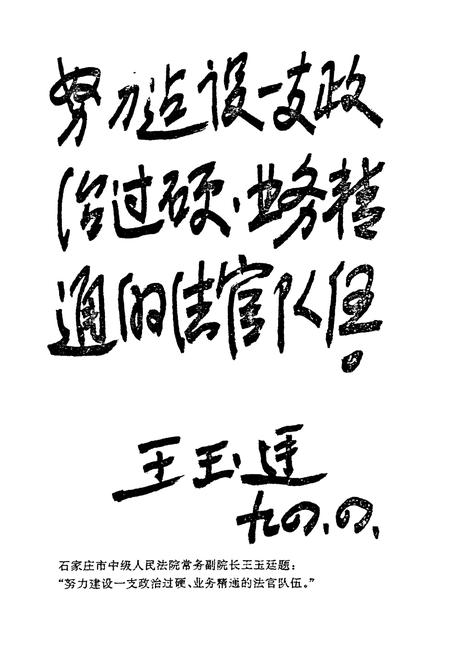 努力建设一支政
治过硬、业务精
通的法官队伍。
王玉廷
九四.四.
石家庄市中级人民法院常务副院长王玉廷题：
“努力建设一支政治过硬、业务精通的法官队伍。”